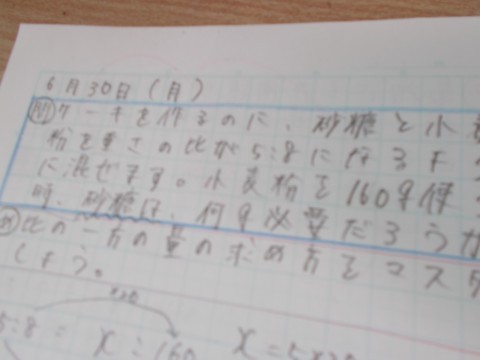 6月30日(月)
問 ケーキを作るのに、砂糖と小麦
粉を重さの比が5:8になるよう
に混ぜます。小麦粉を160g使う
時、砂糖は、何g必要だろうか
め 比の一方の量の求め方をマスタ
しよう。
5:8= x:160 x=5×20